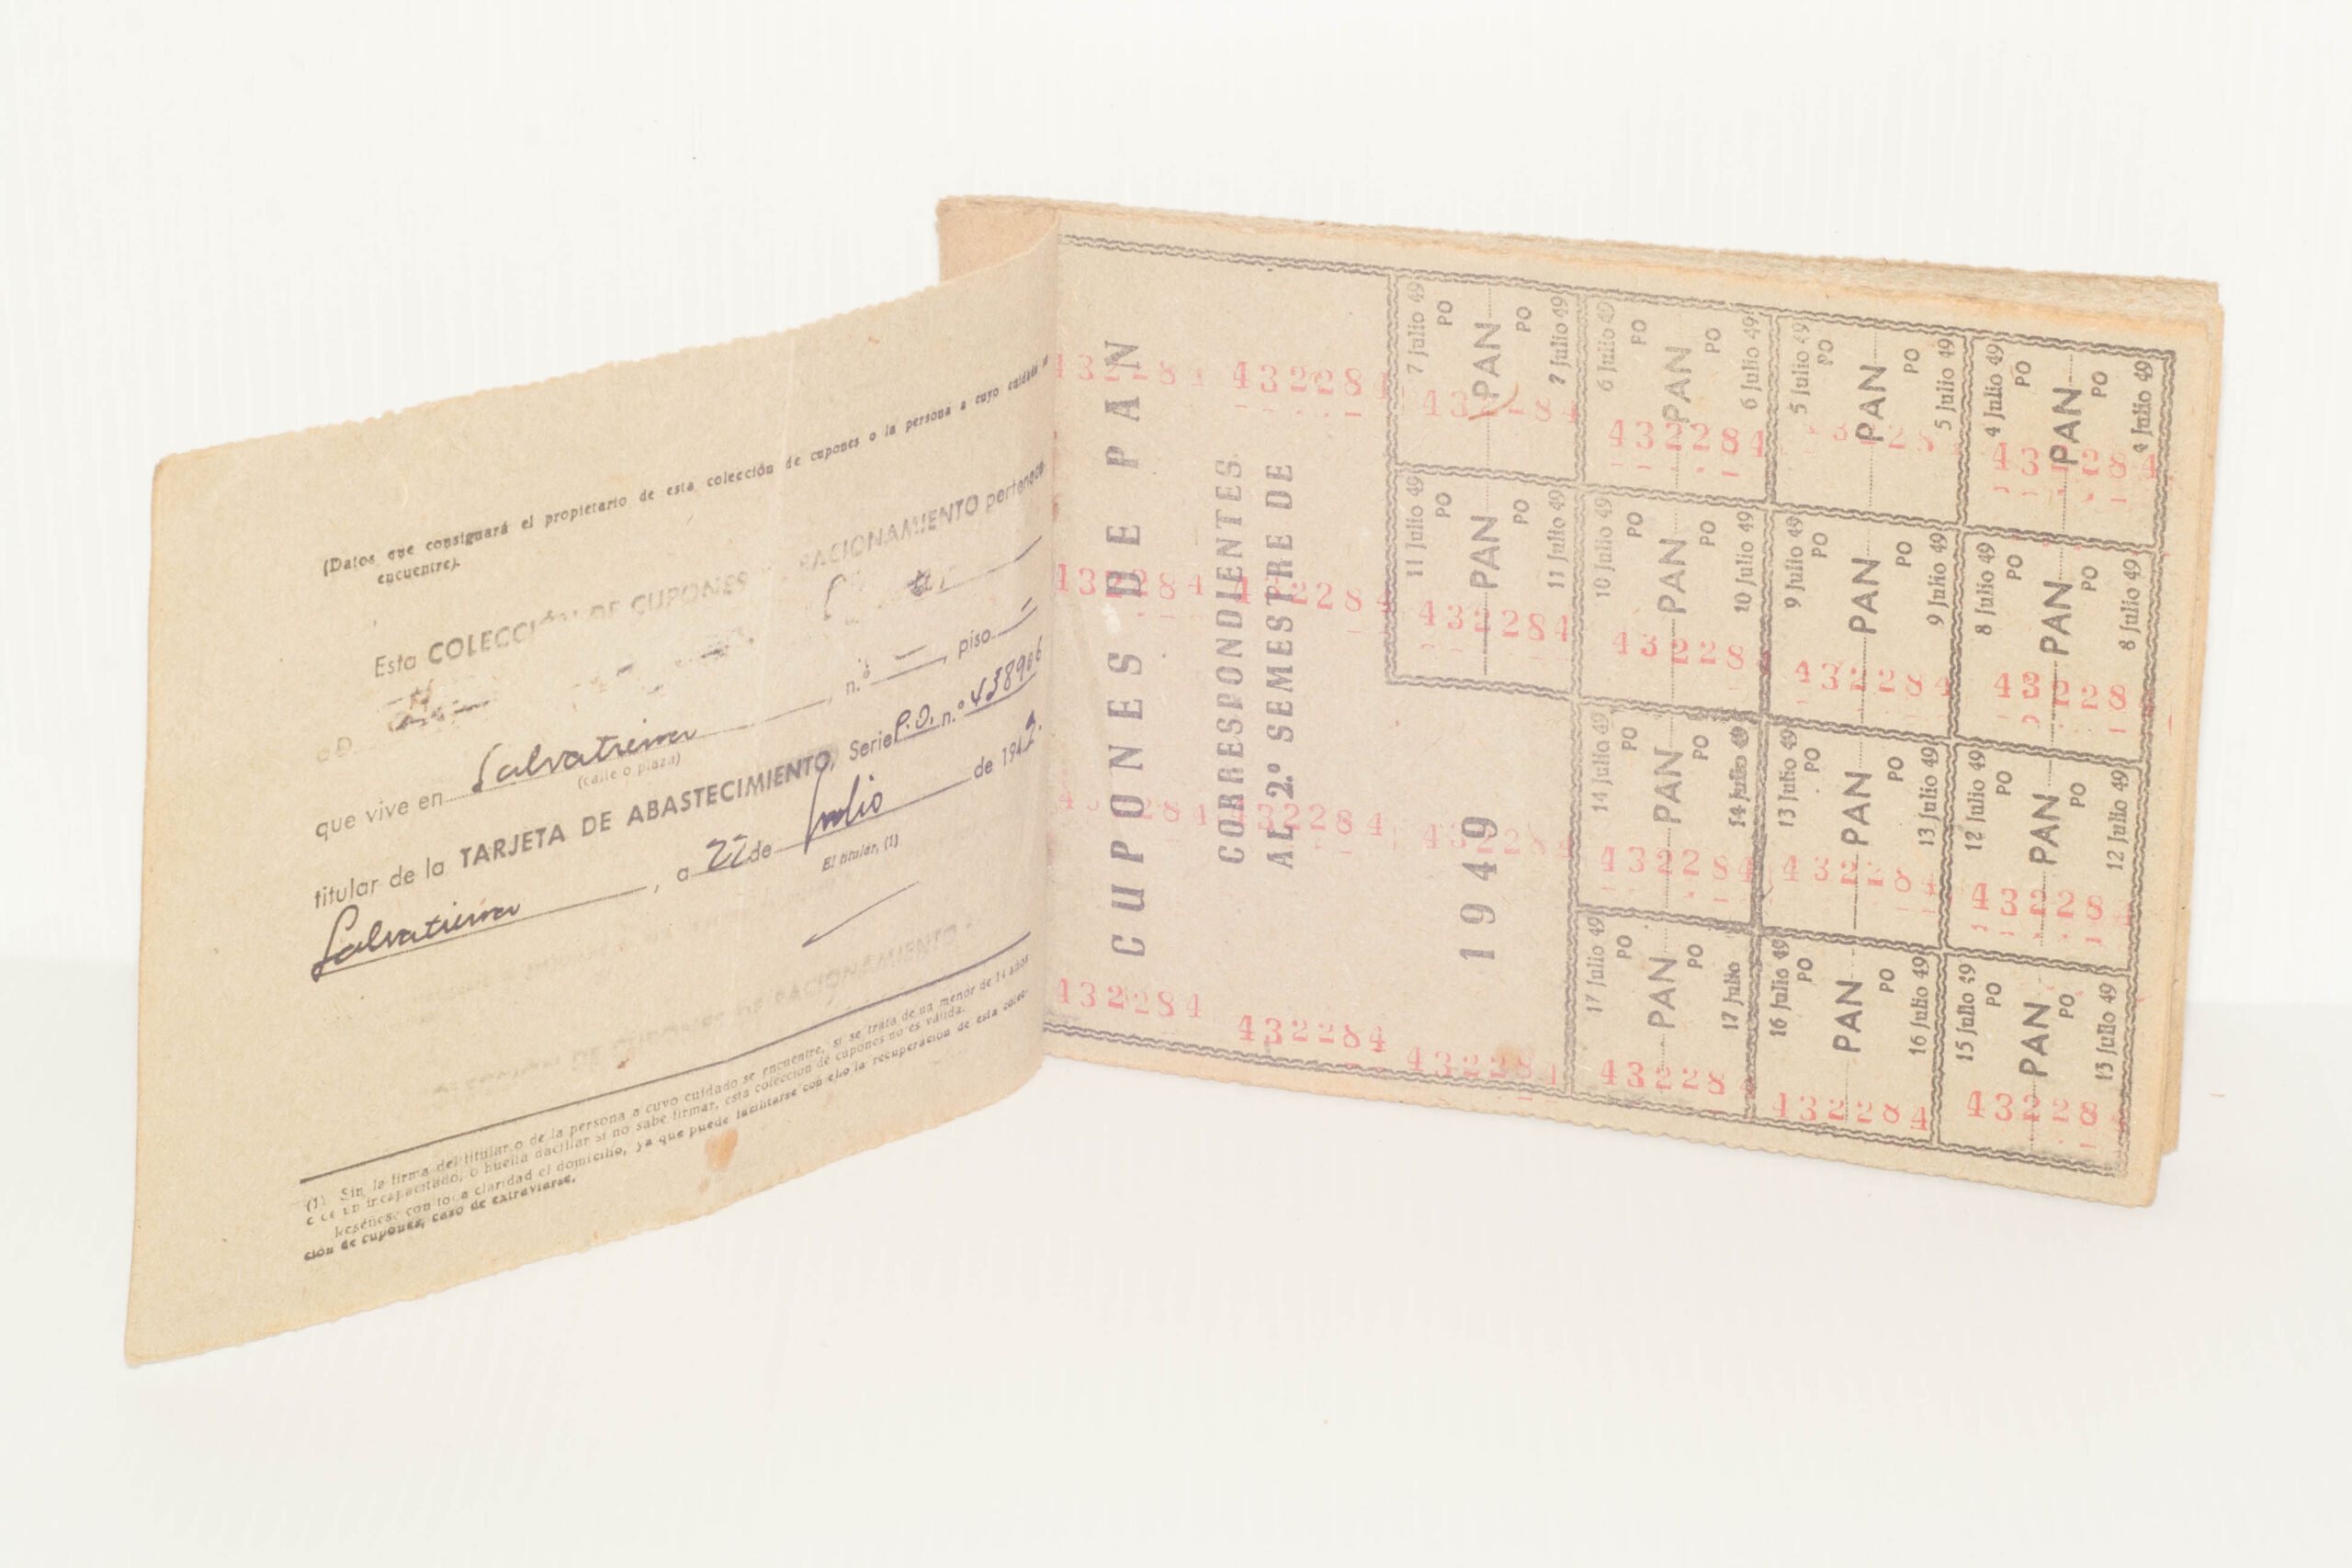 (Datos que consignará el propietario de esta colección de cupones o la persona a cuyo cuidado
encuentre).
Esta COLECCIÓN DE CUPONES RACIONAMIENTO pertenece
a D.
que vive en Salvatierra, n.º — , piso =
(calle o plaza)
titular de la TARJETA DE ABASTECIMIENTO, Serie P.O. n.º 438906
Salvatierra, a 22 de Julio de 194
El titular, (1)
(1). Sin la firma del titular o de la persona a cuyo cuidado se encuentre, si se trata de un menor de 14 años
o de un incapacitado, o huella dactilar si no sabe firmar, esta colección de cupones no es válida.
Reséñese con toda claridad el domicilio, ya que puede facilitarse con ello la recuperación de esta colec-
ción de cupones, caso de extraviarse.
CUPONES DE PAN
CORRESPONDIENTES
AL 2.º SEMESTRE DE
1949
432284 432284
432284 432284
432284 432284
432284 432284 432284
7 Julio 49
PO
PAN
PO
7 Julio 49
432284
6 Julio 49
PO
PAN
PO
6 Julio 49
432284
5 Julio 49
PO
PAN
PO
5 Julio 49
4 Julio 49
PO
PAN
PO
4 Julio 49
432284
11 Julio 49
PO
PAN
PO
11 Julio 49
432284
10 Julio 49
PO
PAN
PO
10 Julio 49
43228
9 Julio 49
PO
PAN
PO
9 Julio 49
432284
8 Julio 49
PO
PAN
PO
8 Julio 49
43228
14 Julio 49
PO
PAN
PO
14 Julio 49
432284
13 Julio 49
PO
PAN
PO
13 Julio 49
432284
12 Julio 49
PO
PAN
PO
12 Julio 49
43228
17 Julio 49
PO
PAN
PO
17 Julio
43228
16 Julio 49
PO
PAN
PO
16 Julio 49
432284
15 Julio 49
PO
PAN
PO
15 Julio 49
43228